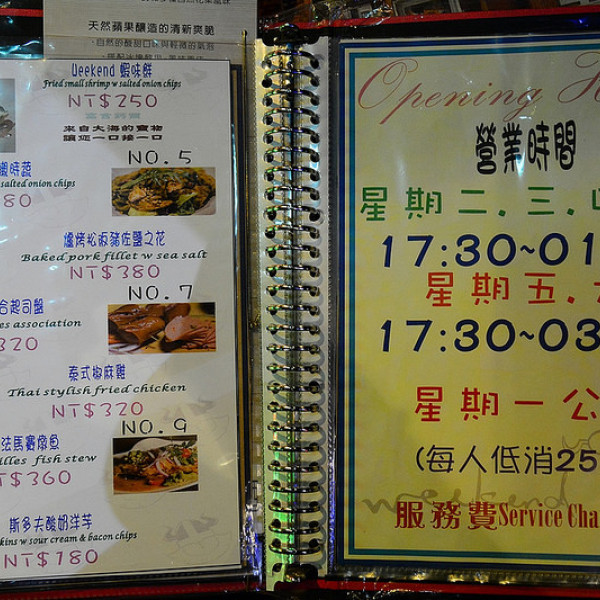 天然蘋果釀造的清新爽脆
Weekend 蝦味鮮
Fried small shrimp w salted onion chips
NT$250
來自大海的寶物
讓您一口接一口
NO.5
時蔬
salted onion chips
80
爐烤松阪豬佐鹽之花
Baked pork fillet w sea salt
NT$380
NO.7
合起司盤
es association
320
泰式椒麻雞
Thai stylish fried chicken
NT$320
NO.9
法馬賽燉魚
illes fish stew
T$360
斯多夫酸奶洋芋
kins w sour cream & bacon chips
NT$180
Opening
營業時間
星期二.三.
17:30~01
星期五.
17:30~03
星期一公
(每人低消25
weekend
服務費Service Cha